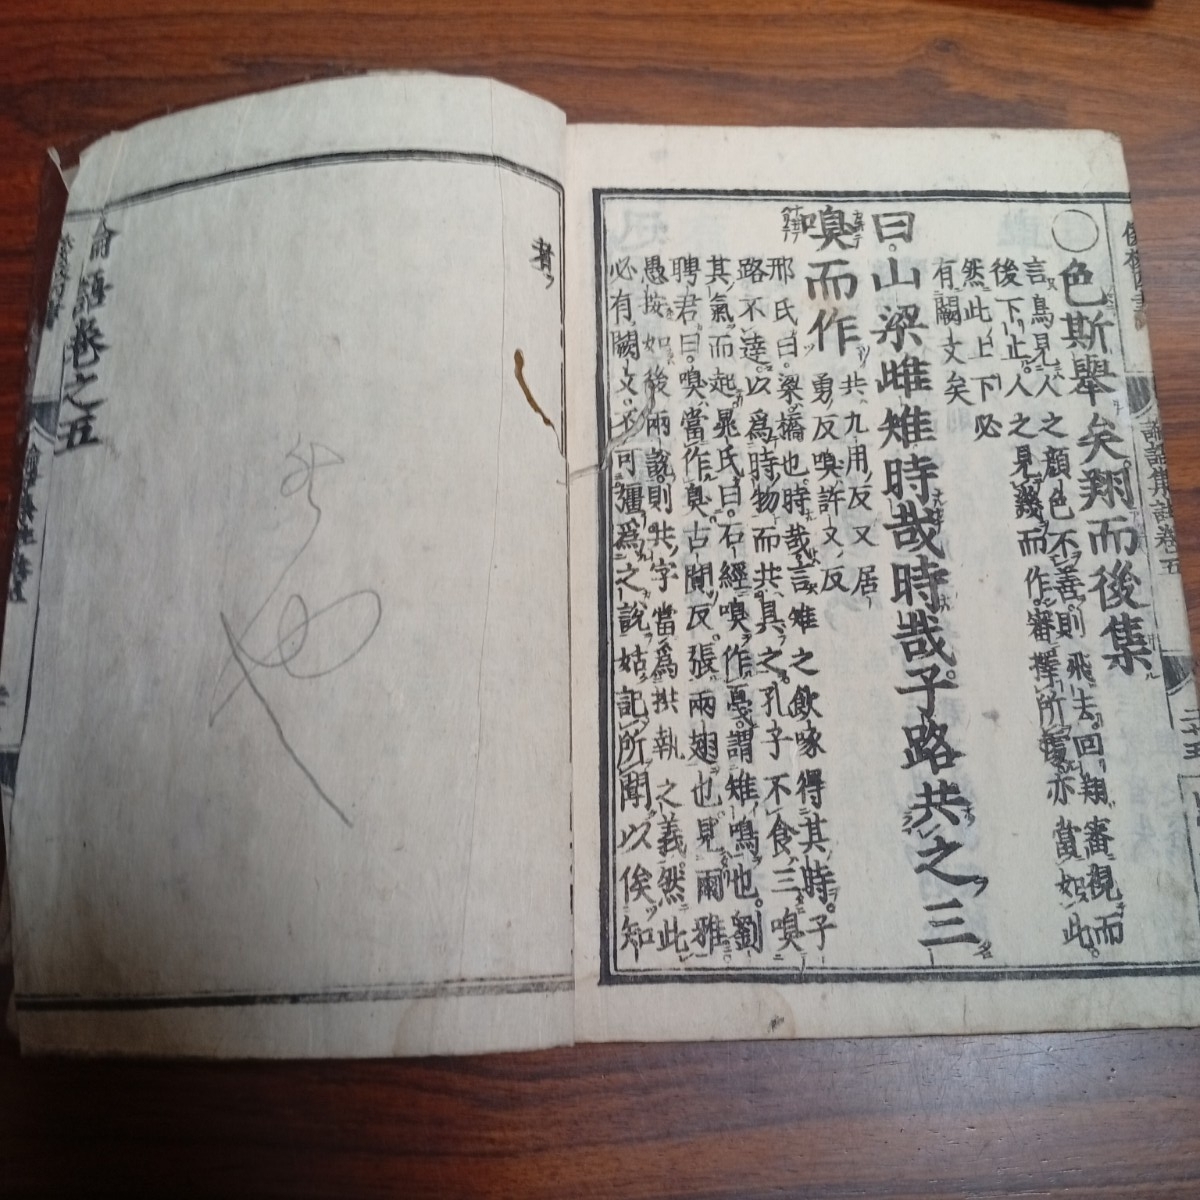 ○色斯舉矣翔而後集
言鳥見人之顏色不善則飛去回翔審視而
後下止人之見幾而作審擇所處亦當如此
然此上下必
有闕文矣
曰山梁雌雉時哉時哉子路共之三
嗅而作
共九用反又居
勇反嗅許又反
邢氏曰梁橋也時哉言雉之飲啄得其時子
路不達以爲時物而共具之孔子不食三嗅
其氣而起晁氏曰石經嗅作戛謂雉鳴也劉
聘君曰嗅當作狊古闃反張兩翅也見爾雅
愚按如後兩說則共字當爲拱執之義然此
必有闕文不可彊爲之說姑記所聞以俟知
者
論語卷之五